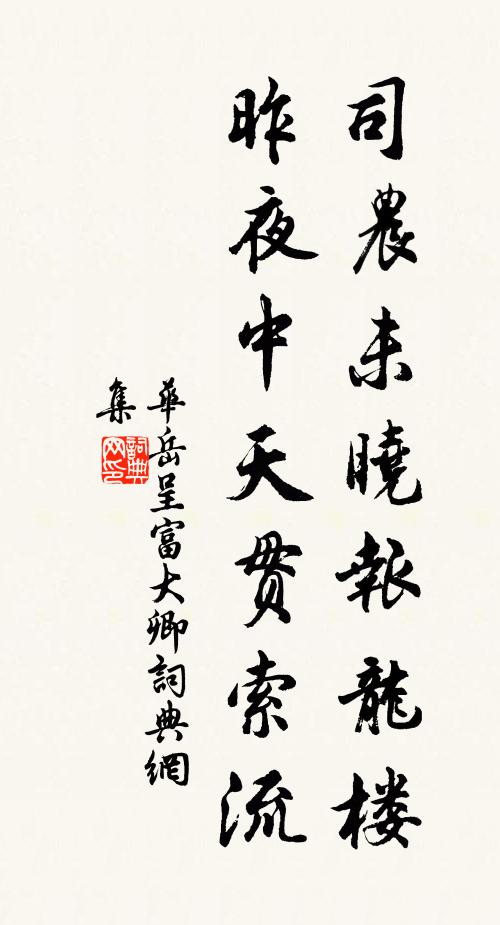 司農未曉報龍楼
昨夜中天貫索流
華岳呈富大卿詞典網
集
詞典
网印